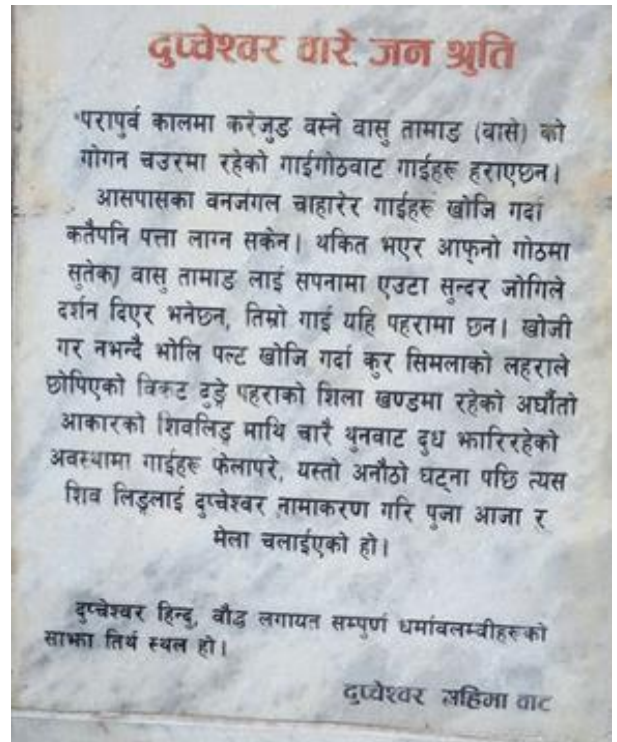 दुप्चेश्वर वारे जन श्रुति
परापुर्व कालमा करेजुङ वस्ने वासु तामाङ (वासे) को
गोगन चउरमा रहेको गाईगोठवाट गाईहरू हराएछन।
आसपासका वनजंगल चाहारेर गाईहरू खोजि गर्दा
कतैपनि पत्ता लाग्न सकेन। थकित भएर आफ्नो गोठमा
सुतेका वासु तामाङ लाई सपनामा एउटा सुन्दर जोगिले
दर्शन दिएर भनेछन, तिम्रो गाई यहि पहरामा छन। खोजी
गर नभन्दै भोलि पल्ट खोजि गर्दा कुर सिमलाको लहराले
छोपिएको विकट ढुङ्गे पहराको शिला खण्डमा रहेको अर्घौतो
आकारको शिवलिङ्ग माथि चारै थुनवाट दुध झारिरहेको
अवस्थामा गाईहरू फेलापरे, यस्तो अनौठो घट्ना पछि त्यस
शिव लिङ्गलाई दुप्चेश्वर नामाकरण गरि पुजा आजा र
मेला चलाईएको हो।
दुप्चेश्वर हिन्दु, वौद्ध लगायत सम्पुर्ण धर्मावलम्वीहरूको
साझा तिर्थ स्थल हो।
दुप्चेश्वर महिमा वाट